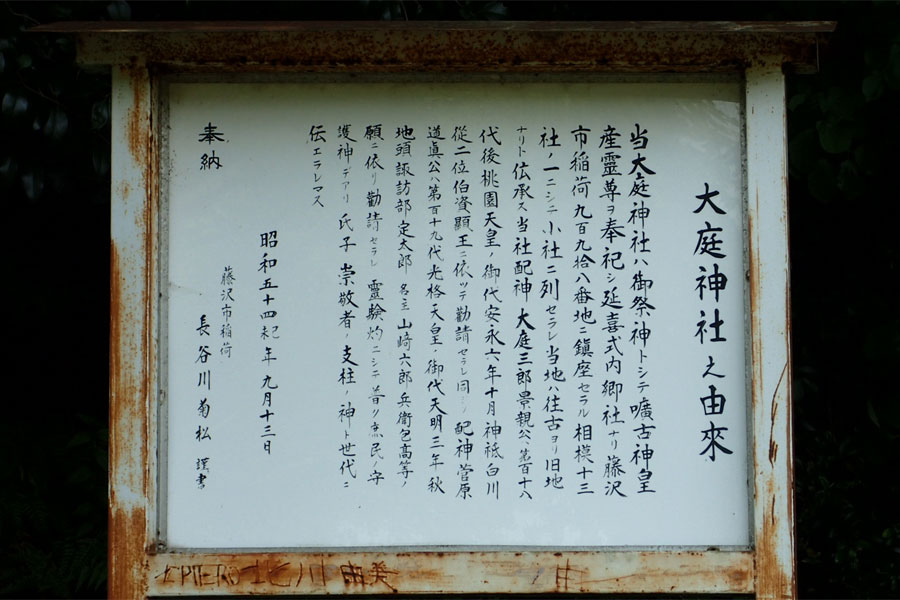 大庭神社之由來
当大庭神社ハ御祭神トシテ曠古神皇
産霊尊ヲ奉祀シ延喜式内郷社ナリ藤沢
市稲荷九百九拾八番地ニ鎮座セラル相模十三
社ノ一ニシテ小社ニ列セラレ当地ハ往古ヨリ旧地
ナリト伝承ス当社配神大庭三郎景親公ハ第百十八
代後桃園天皇ノ御代安永六年十月神祇白川
従二位伯資顕王ニ依ッテ勧請セラレ同ジク配神菅原
道眞公ハ第百十九代光格天皇ノ御代天明三年秋
地頭諏訪部定太郎名主山﨑六郎兵衛包高等ノ
願ニ依リ勧請セラレ霊験灼ニシテ普ク庶民ノ守
護神デアリ氏子崇敬者ノ支柱ノ神ト世代ニ
伝エラレマス
昭和五十四年九月十三日
藤沢市稲荷
長谷川菊松 謹書
奉納